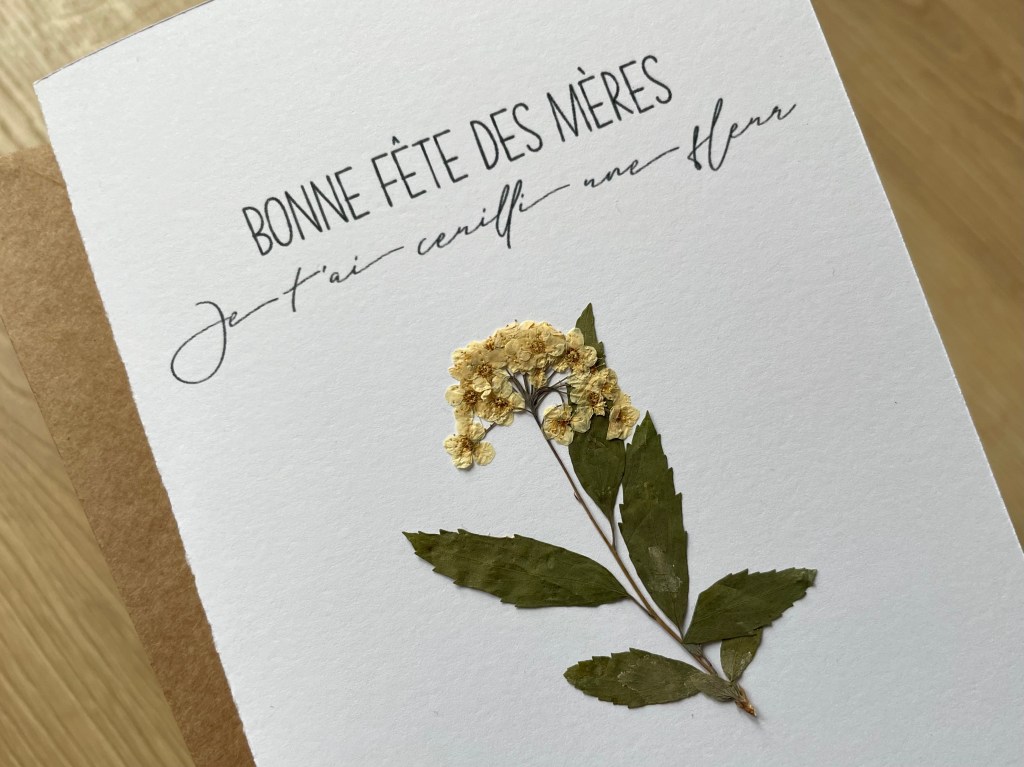 BONNE FÊTE DES MÈRES
Je t'ai cueilli une fleur